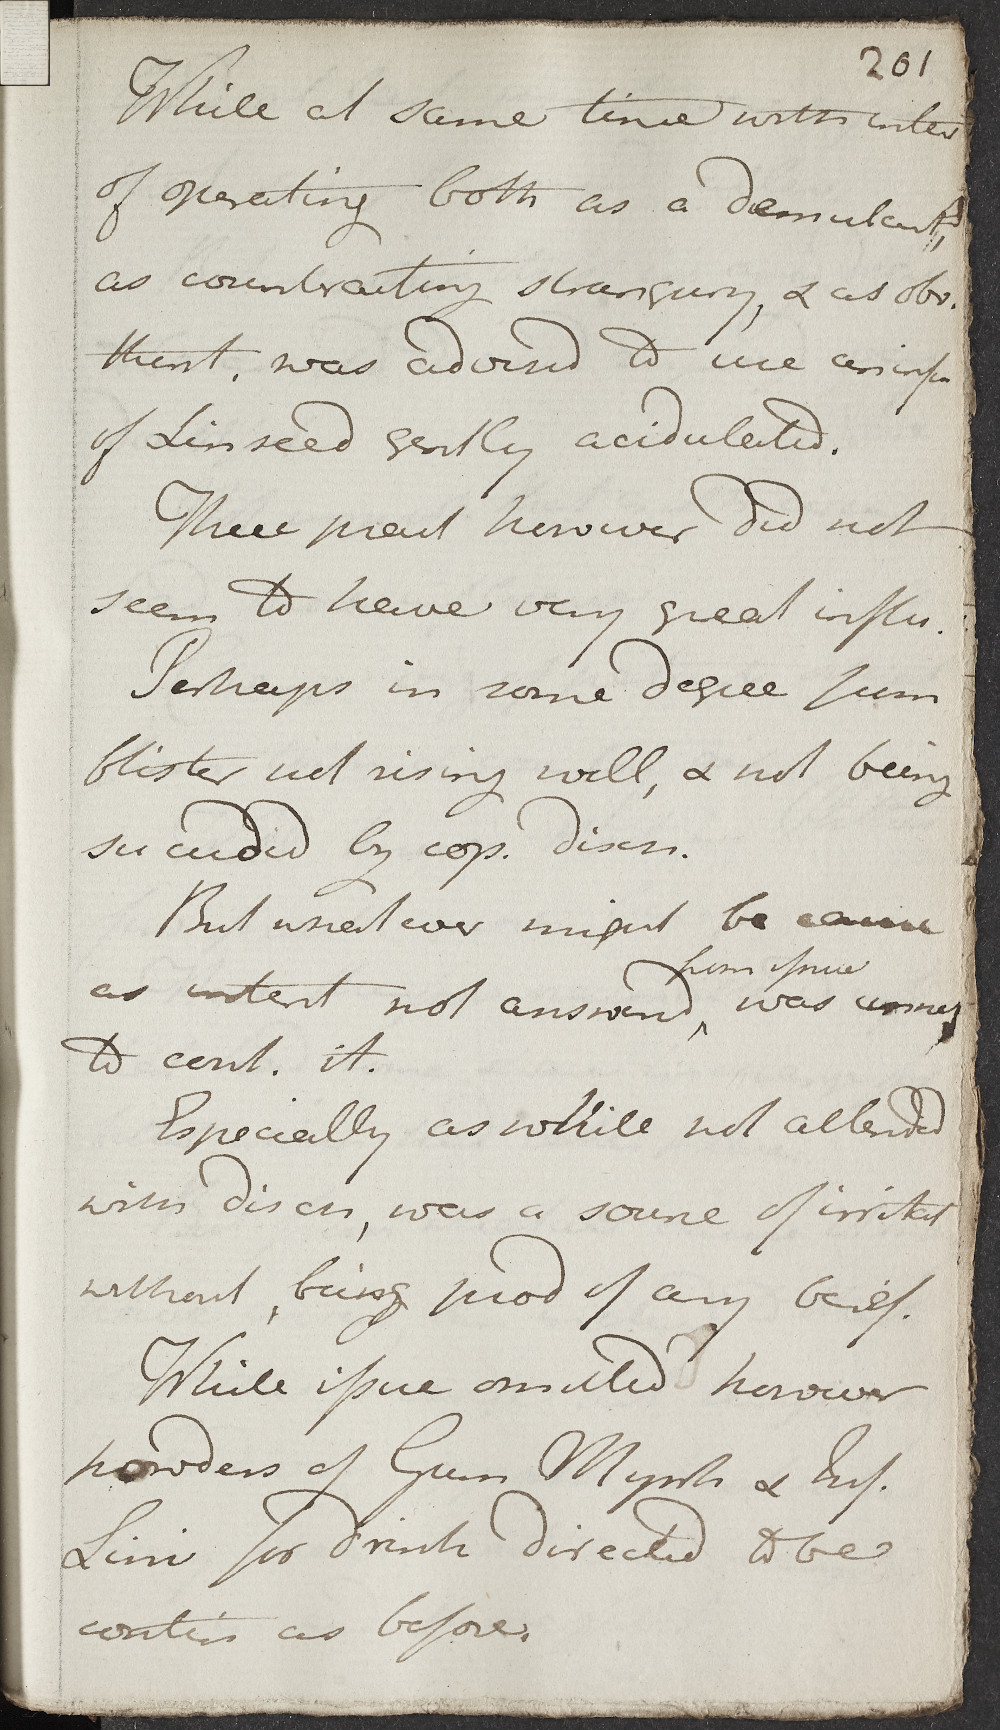 201
While at same time with inten
of operating both as a demulcent,
as counteracting strangury, & as obv.
thirst, was advised to use an inf.
of Linseed gently acidulated.
These pract however did not
seem to have very great influ.
Perhaps in some degree from
blister not rising well, & not being
succeeded by cop. discn.
But whatever might be cause
as intent not answerd, was unnes
from issue
to cont. it.
Especially as while not attended
with discn, was a source of irritat
without, being prod of any benef.
While issue omitted however
powders of Gum Myrrh & Inf.
Lini for drink directed to be
contin as before.